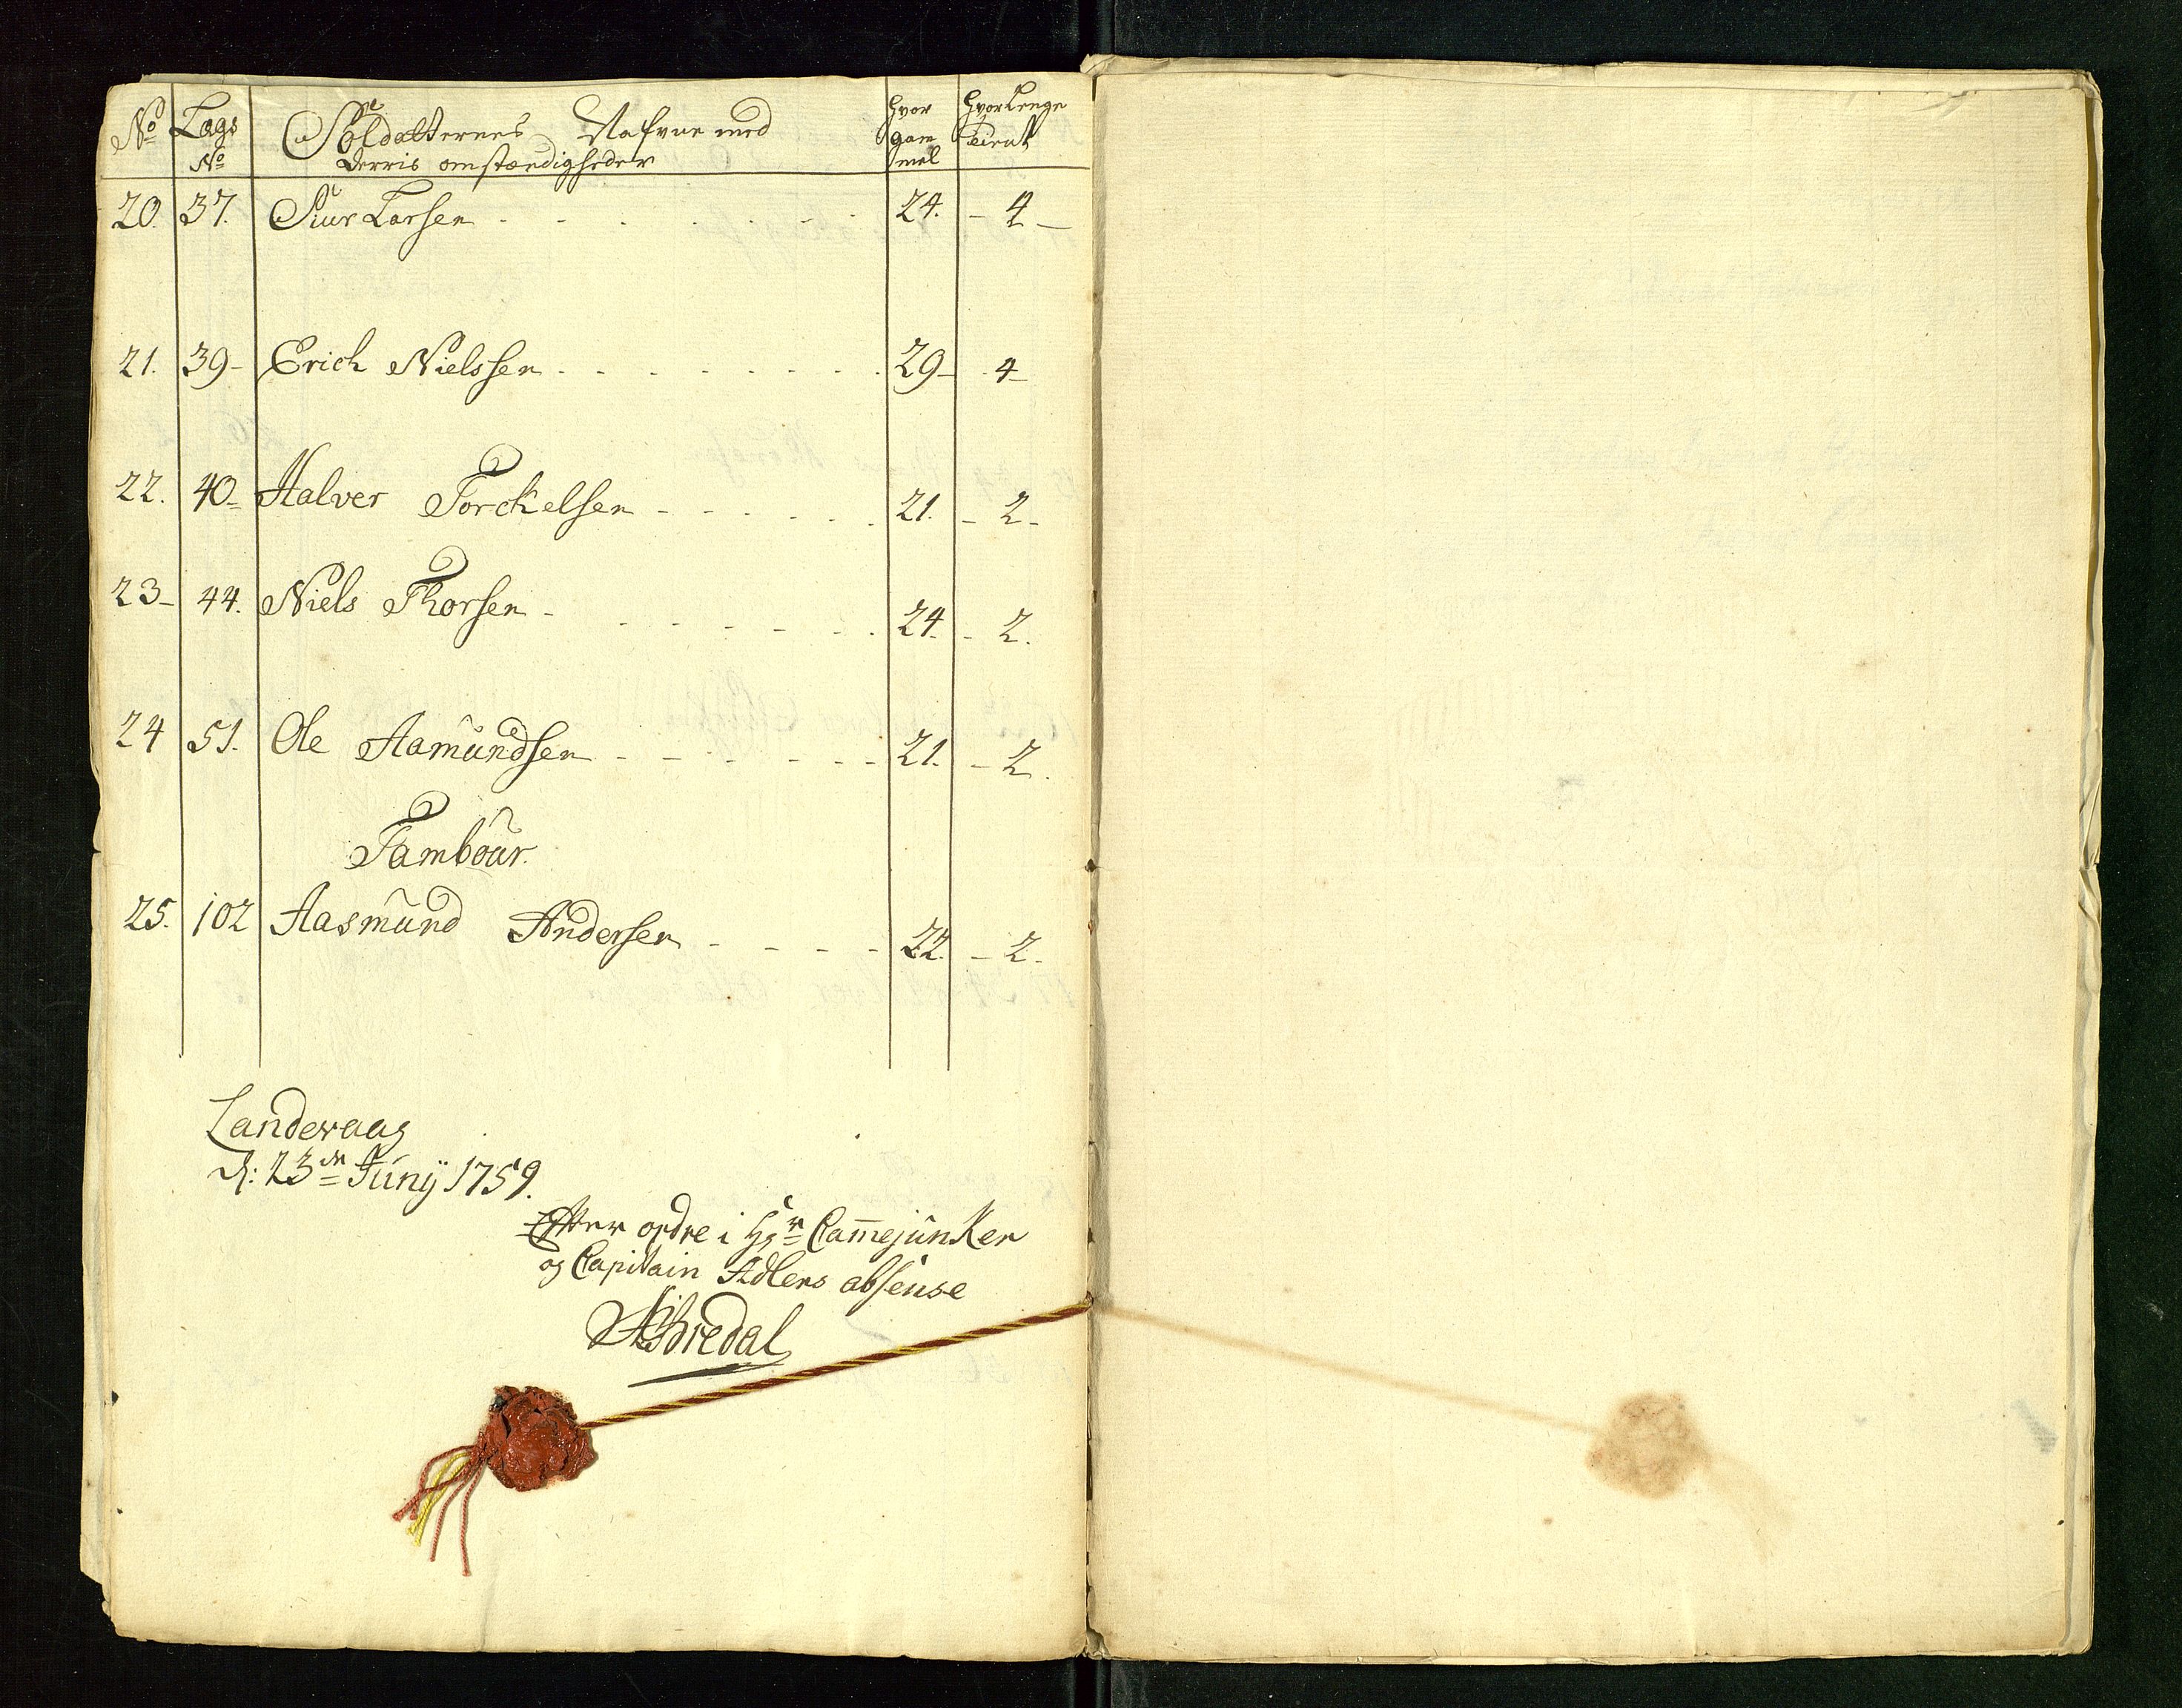 No Lags No Soldatternes Nafvne med Derris omstændigheder hvor gam mel hvor Lenge Tient
20. 37. Siur Larsen 24. 4
21. 39 Erich Nielssen 29 4
22. 40 Halver Torckelsen 21. 2
23 44. Niels Thorsen 24. 2.
24 51. Ole Aamundsen 21. 2.
Tambour.
25. 102 Aasmund Andersen 22. 2.
Landevaag
d: 23de Junÿ 1759.
Efter ordre i Hr Cam̅ejunker
og Capitain Adlers absense
Bredal